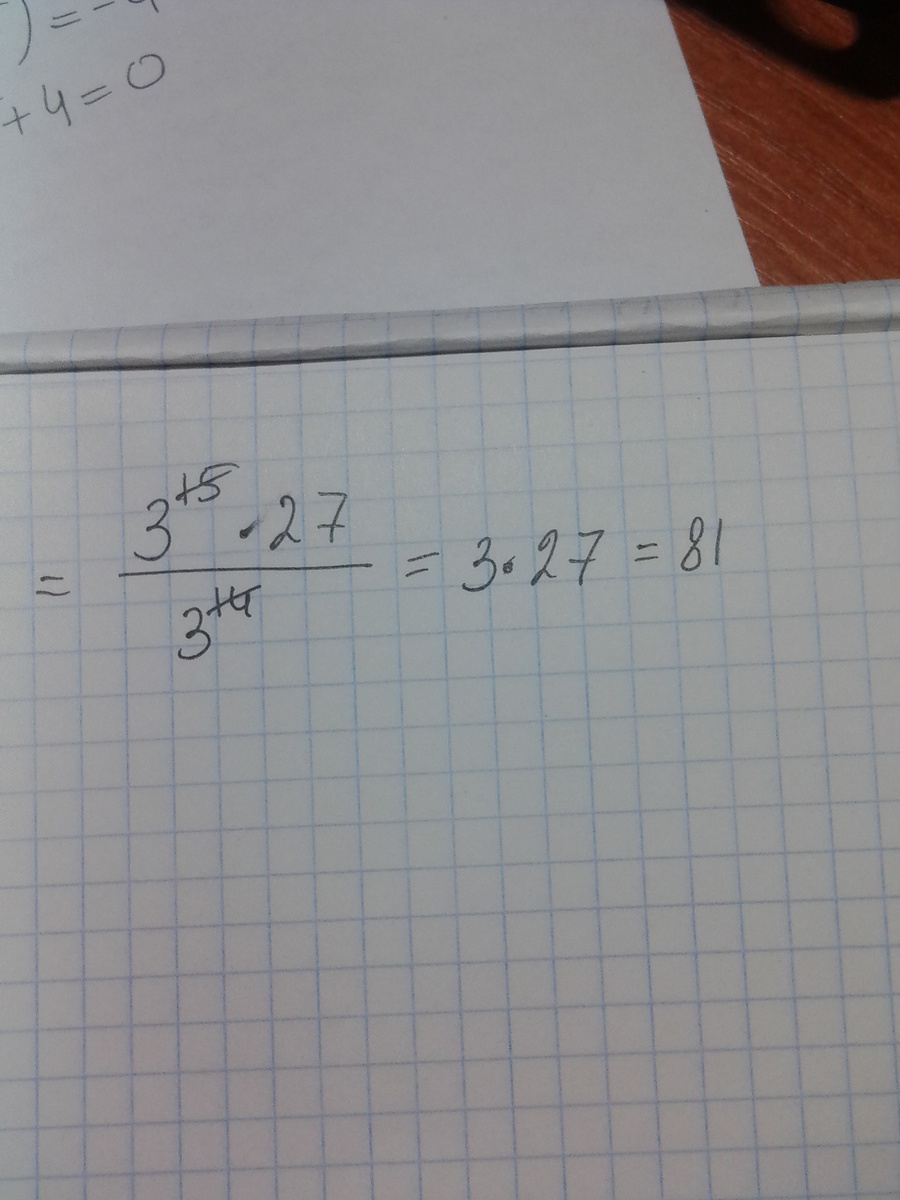 ) = -4
+ 4 = 0
= 3^{+5} · 27 / 3^{+4} = 3 · 27 = 81